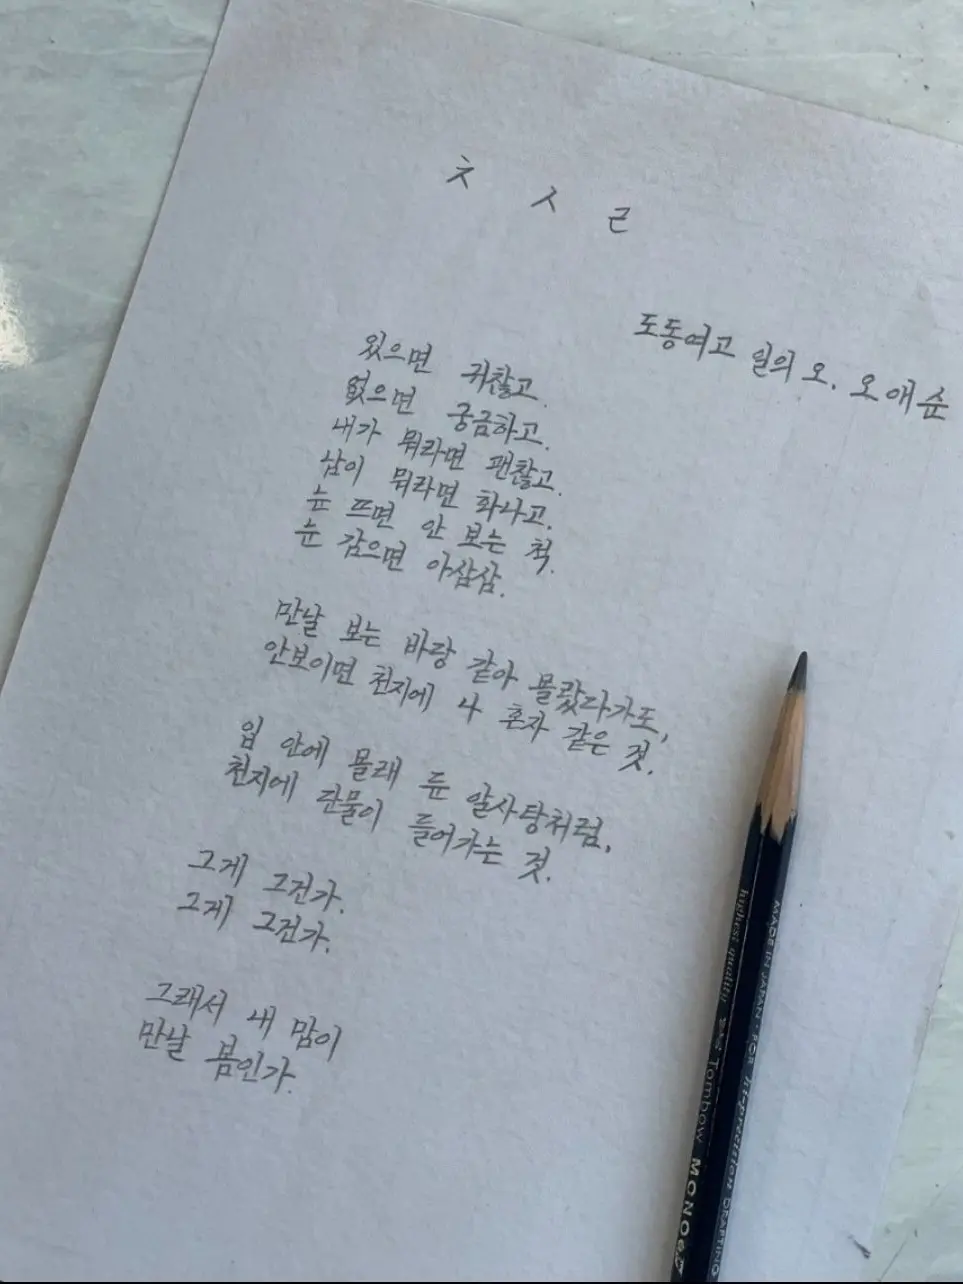 ㅊ ㅅ ㄹ
도동여고 일의 오. 오애순
있으면 귀찮고.
없으면 궁금하고.
내가 뭐라면 괜찮고.
남이 뭐라면 화나고.
눈 뜨면 안 보는 척.
눈 감으면 아삼삼.
만날 보는 바랑 같아 몰랐다가도,
안보이면 천지에 나 혼자 같은 것.
입 안에 몰래 둔 알사탕처럼,
천지에 단물이 들어가는 것.
그게 그건가.
그게 그건가.
그래서 내 맘이
만날 봄인가.
MADE IN JAPAN · FOR hi-precision DRAFTING
highest quality Tombow MONO